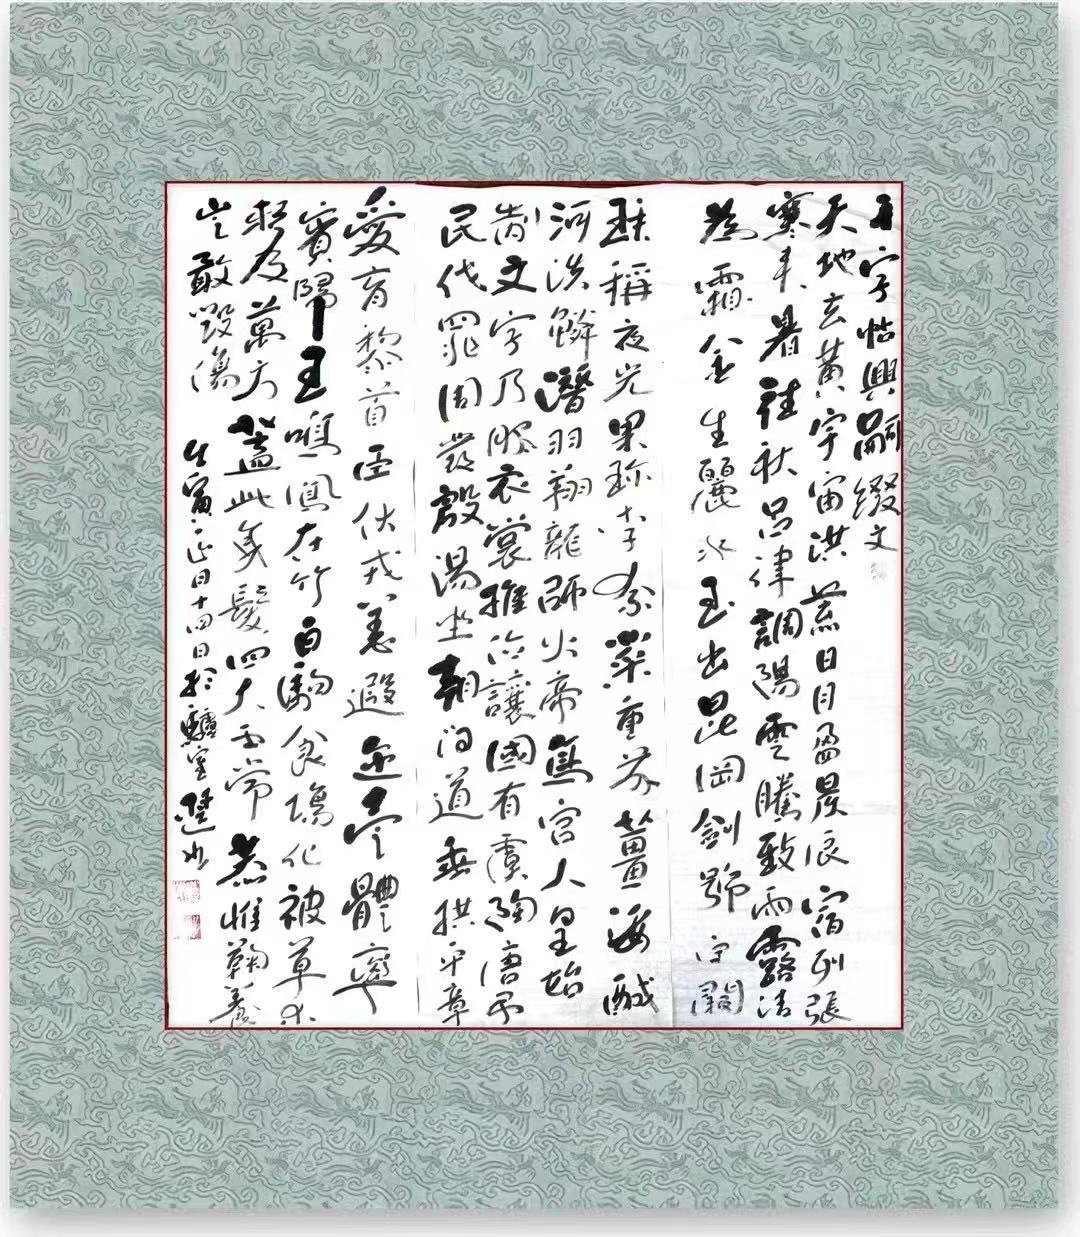 千字帖興嗣綴文
天地玄黃宇宙洪荒日月盈昃辰宿列張
寒来暑往秋呂律調陽雲騰致雨露结
為霜金生麗水玉出昆岡劍號巨闕
珠稱夜光果珍李柰菜重芥薑海醎
河淡鱗潛羽翔龍師火帝鳥官人皇始
制文字乃服衣裳推位讓國有虞陶唐弔
民伐罪周發殷湯坐朝问道垂拱平章
愛育黎首臣伏戎羌遐迩壹體率
賓歸王鳴鳳在竹白駒食場化被草木
賴及萬方蓋此身髮四大五常恭惟鞠養
豈敢毀傷
壬寅正月十四日於